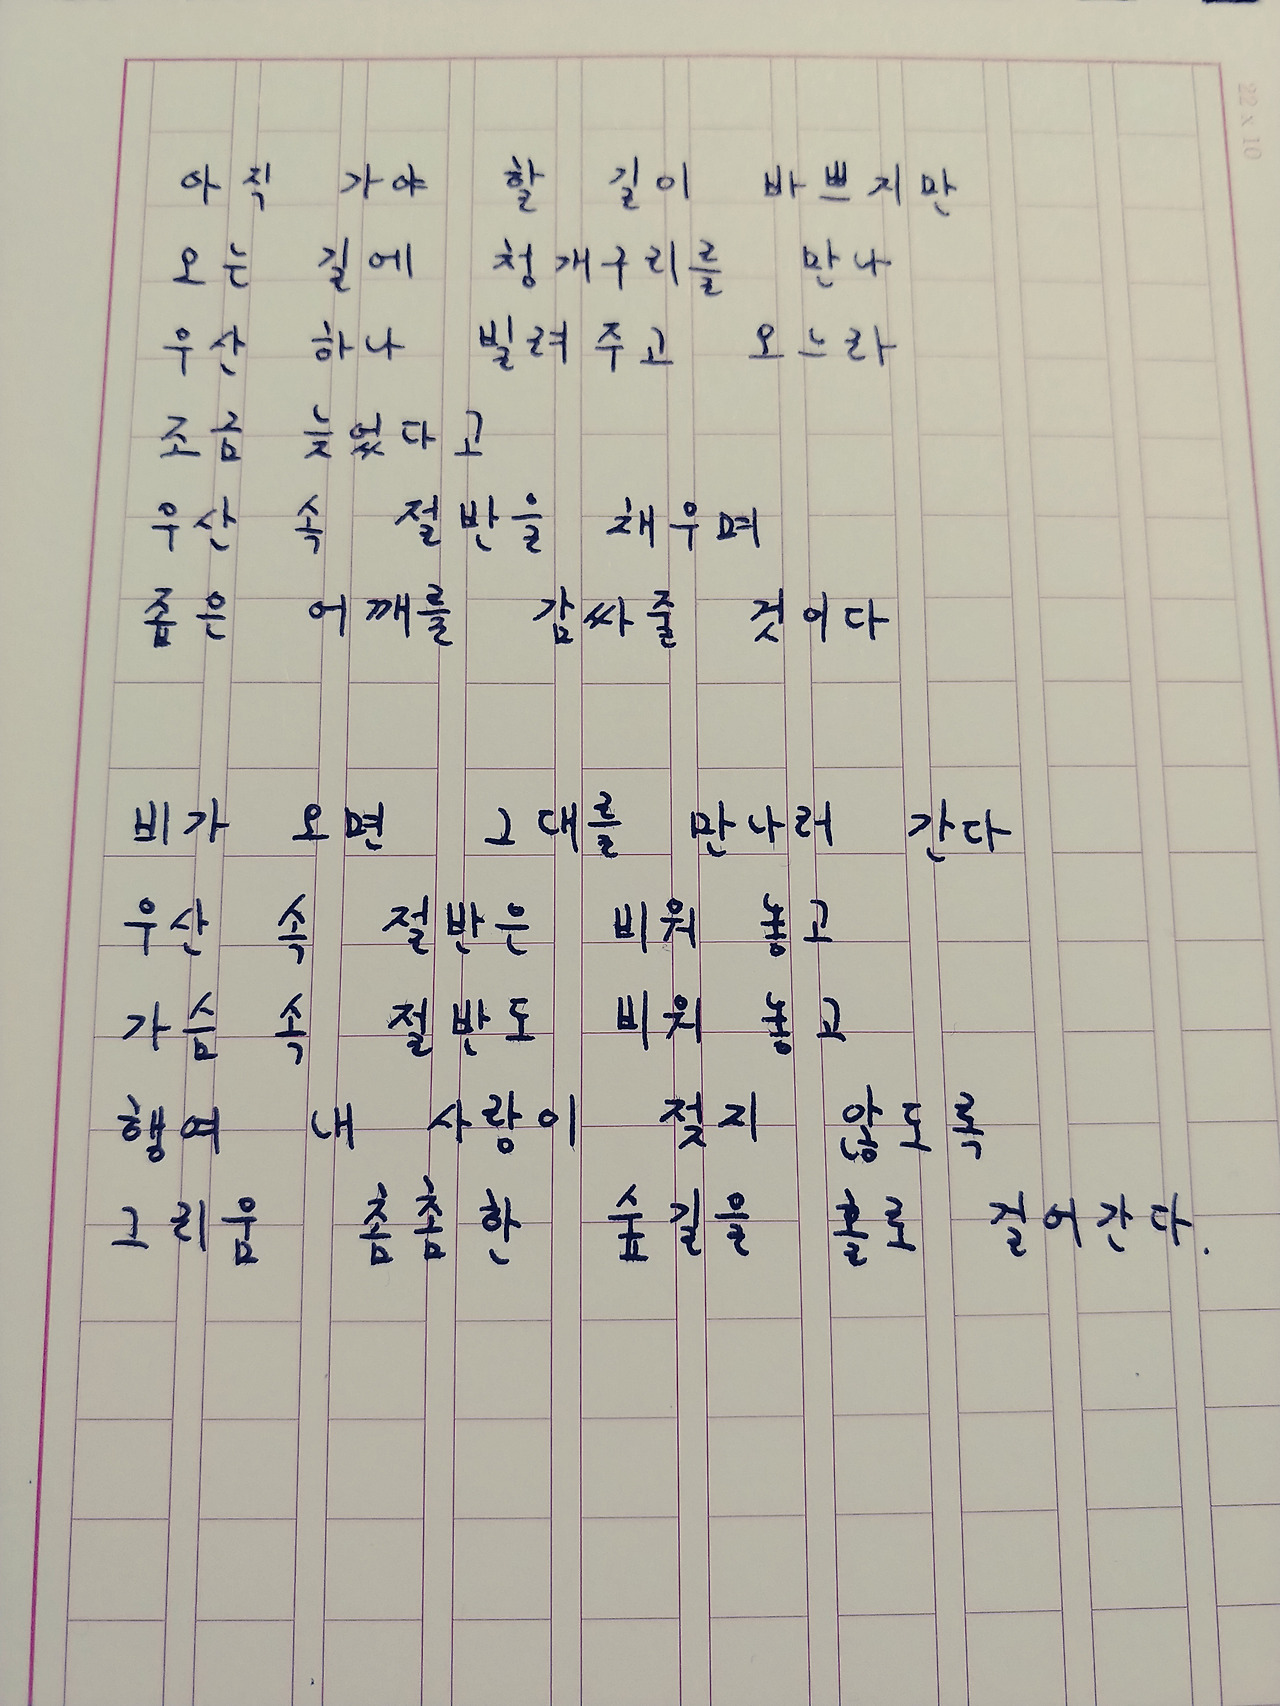 22 x 10
아직 가야 할 길이 바쁘지만
오는 길에 청개구리를 만나
우산 하나 빌려주고 오느라
조금 늦었다고
우산 속 절반을 채우며
좁은 어깨를 감싸줄 것이다
비가 오면 그대를 만나러 간다
우산 속 절반은 비워 놓고
가슴 속 절반도 비워 놓고
행여 내 사랑이 젖지 않도록
그리움 촘촘한 숲길을 홀로 걸어간다.